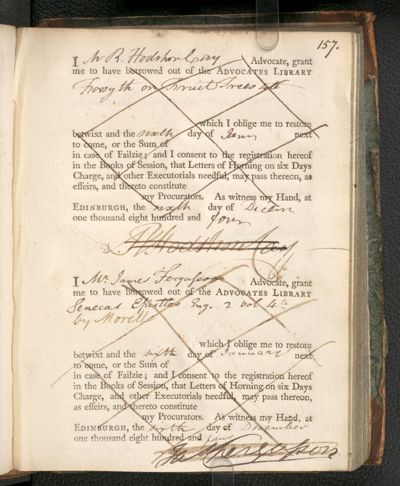 157.
I R. Hodshon Cay Advocate, grant
me to have borrowed out of the ADVOCATES LIBRARY
Forsyth on Fruit Trees
which I oblige me to restore
betwixt and the sixth day of Janry next
to come, or the Sum of
in case of Failzie; and I consent to the registration hereof
in the Books of Session, that Letters of Horning on six Days
Charge, and other Executorials needful, may pass thereon, as
effeirs, and thereto constitute
my Procurators. As witness my Hand, at
EDINBURGH, the sixth day of Decem
one thousand eight hundred and four
R. Hodshon Cay
I Mr. James Fergusson Advocate, grant
me to have borrowed out of the ADVOCATES LIBRARY
Senecas Epistles Eng. 2 vol 4to
by Morell
which I oblige me to restore
betwixt and the sixth day of January next
to come, or the Sum of
in case of Failzie; and I consent to the registration hereof
in the Books of Session, that Letters of Horning on six Days
Charge, and other Executorials needful, may pass thereon,
as effeirs, and thereto constitute
my Procurators. As witness my Hand, at
EDINBURGH, the sixth day of December
one thousand eight hundred and four
Ja Fergusson